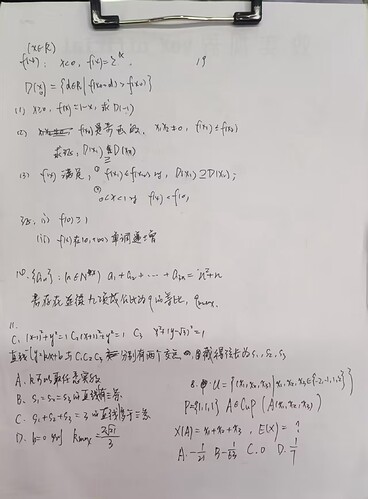 (x∈R)
f(x): x<0, f(x)=2^x. 19
D(x₀)={d∈R | f(x₀-d)>f(x₀)}
(1) x≥0, f(x)=1-x, 求D(-1)
(2) f(x)是奇函数, x₁x₂≠0, f(x₁)≤f(x₂)
求证, D(x₁) ⊇ D(x₂)
(3) f(x) 满足, ① f(x₁)≤f(x₂)时, D(x₁)⊇D(x₂);
② 0<x<1时 f(x)<f(0)
i) f(0)≥1
(ii) f(x)在(0,+∞)单调递增
10. {aₙ}: (n∈N*) a₁+a₂+⋯+a₂ₙ=n²+n
若存在连续九项成公比为q的等比, qmax.
11.
C₁ (x-1)²+y²=1 C₂(x+1)²+y²=1 C₃ x²+(y-√3)²=1
直线l y=kx+b与C₁C₂C₃分别有两个交点 截得弦长为s₁, s₂, s₃
A. k可以取任意实数
B. s₁=s₂=s₃的直线有三条
C. s₁+s₂+s₃=3的直线多于三条
D. b=0时
8. U={(x₁,x₂,x₃)|x₁,x₂,x₃∈{-2,-1,1,2}}
P={1,1,1} A∈CuP (A(x₁,x₂,x₃)
X(A)=x₁+x₂+x₃, E(X)=?
A. -1/21 B -1/63 C. 0 D.